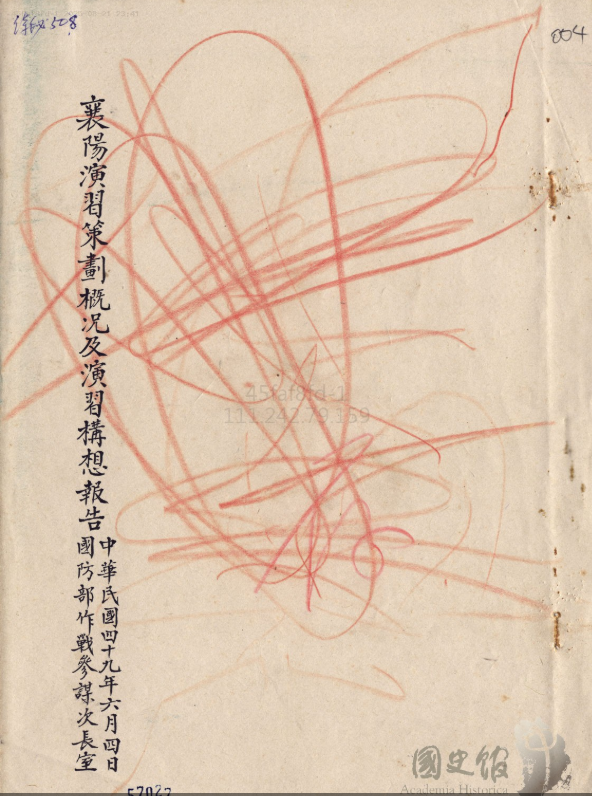 004
襄陽演習策劃概況及演習構想報告
中華民國四十九年六月四日
國防部作戰參謀次長室
45faf8fd-1
111.242.79.159
國史館
Academia Historica